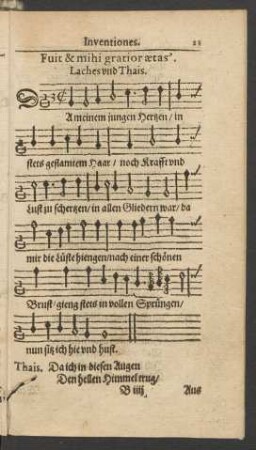 Inventiones. 11
Fuit & mihi gratior ætas.
Laches vnd Thais.
A meinem jungen Hertzen / in
stets Haar / noch Krafft vnd
Lust zu schertzen / in allen Gliedern war / da
mir die Lüste hiengen / nach einer schönen
Brust / gieng stets in vollen Sprüngen /
nun sitz ich hie vnd hust.
Thais. Da ich in diesen Augen
Den hellen Himmel trug /
B iiij Aus